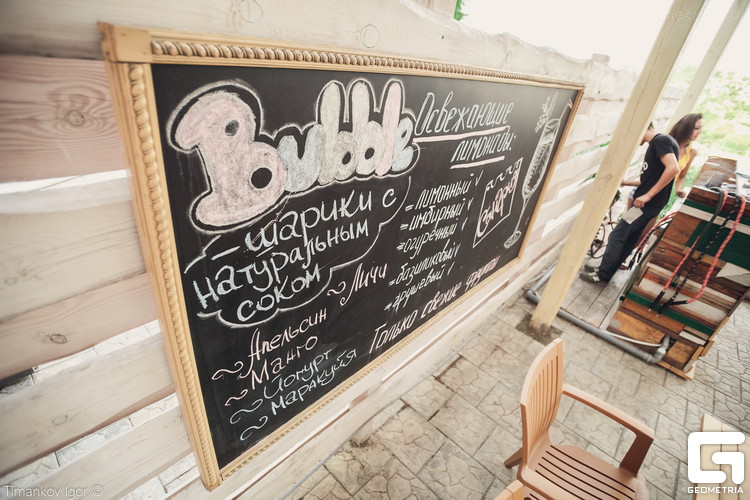 Bubble
- шарики с
натуральным
соком
~ Апельсин ~ Личи
~ Манго
~ Йогурт
~ Маракуйя
Освежающие
лимонады:
= лимонный ✓
= имбирный ✓
= огуречный ✓
= базиликовый ✓
= грушевый ✓
Только свежие фрукты
Timankov Igor ©
GEOMETRIA